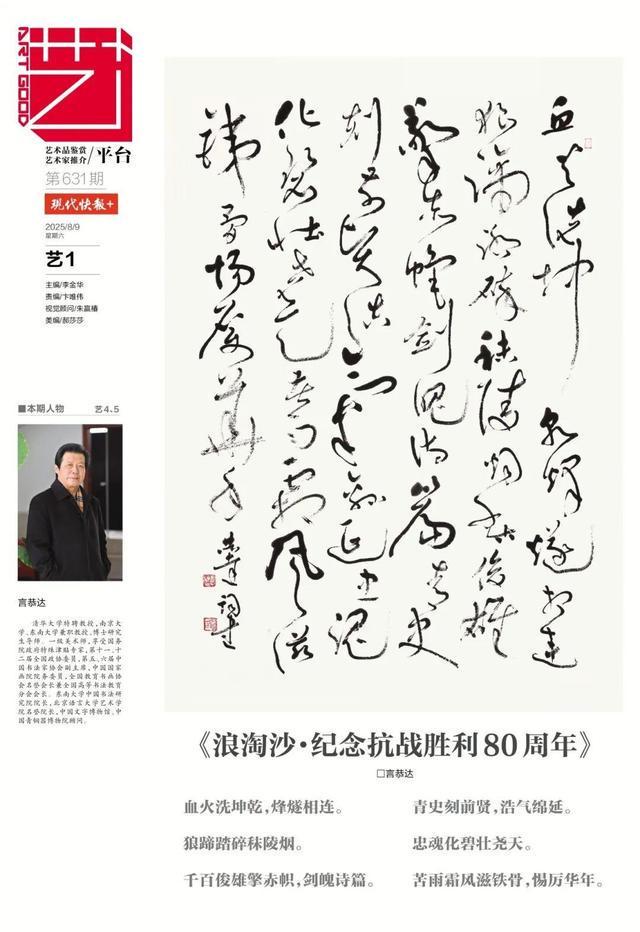 艺
ART GOOD
艺术品鉴赏
艺术家推介/平台
第631期
现代快报+
2025/8/9
星期六
艺1
主编/李金华
责编/卞唯伟
视觉顾问/朱赢椿
美编/郝莎莎
■本期人物 艺4、5
言恭达
清华大学特聘教授,南京大
学、东南大学兼职教授,博士研究
生导师。一级美术师,享受国务
院政府特殊津贴专家,第十一、十
二届全国政协委员,第五、六届中
国书法家协会副主席,中国国家
画院院务委员,全国教育书画协
会名誉会长兼全国高等书法教育
分会会长。东南大学中国书法研
究院院长,北京语言大学艺术学
院名誉院长,中国文字博物馆、中
国青铜器博物院顾问。
血火洗坤乾烽燧相连
狼蹄踏碎秣陵烟千百俊雄
擎赤帜剑魄诗篇青史
刻前贤浩气绵延忠魂
化碧壮尧天苦雨霜风滋
铁骨惕厉华年
《浪淘沙·纪念抗战胜利80周年》
□言恭达
血火洗坤乾,烽燧相连。
狼蹄踏碎秣陵烟。
千百俊雄擎赤帜,剑魄诗篇。
青史刻前贤,浩气绵延。
忠魂化碧壮尧天。
苦雨霜风滋铁骨,惕厉华年。